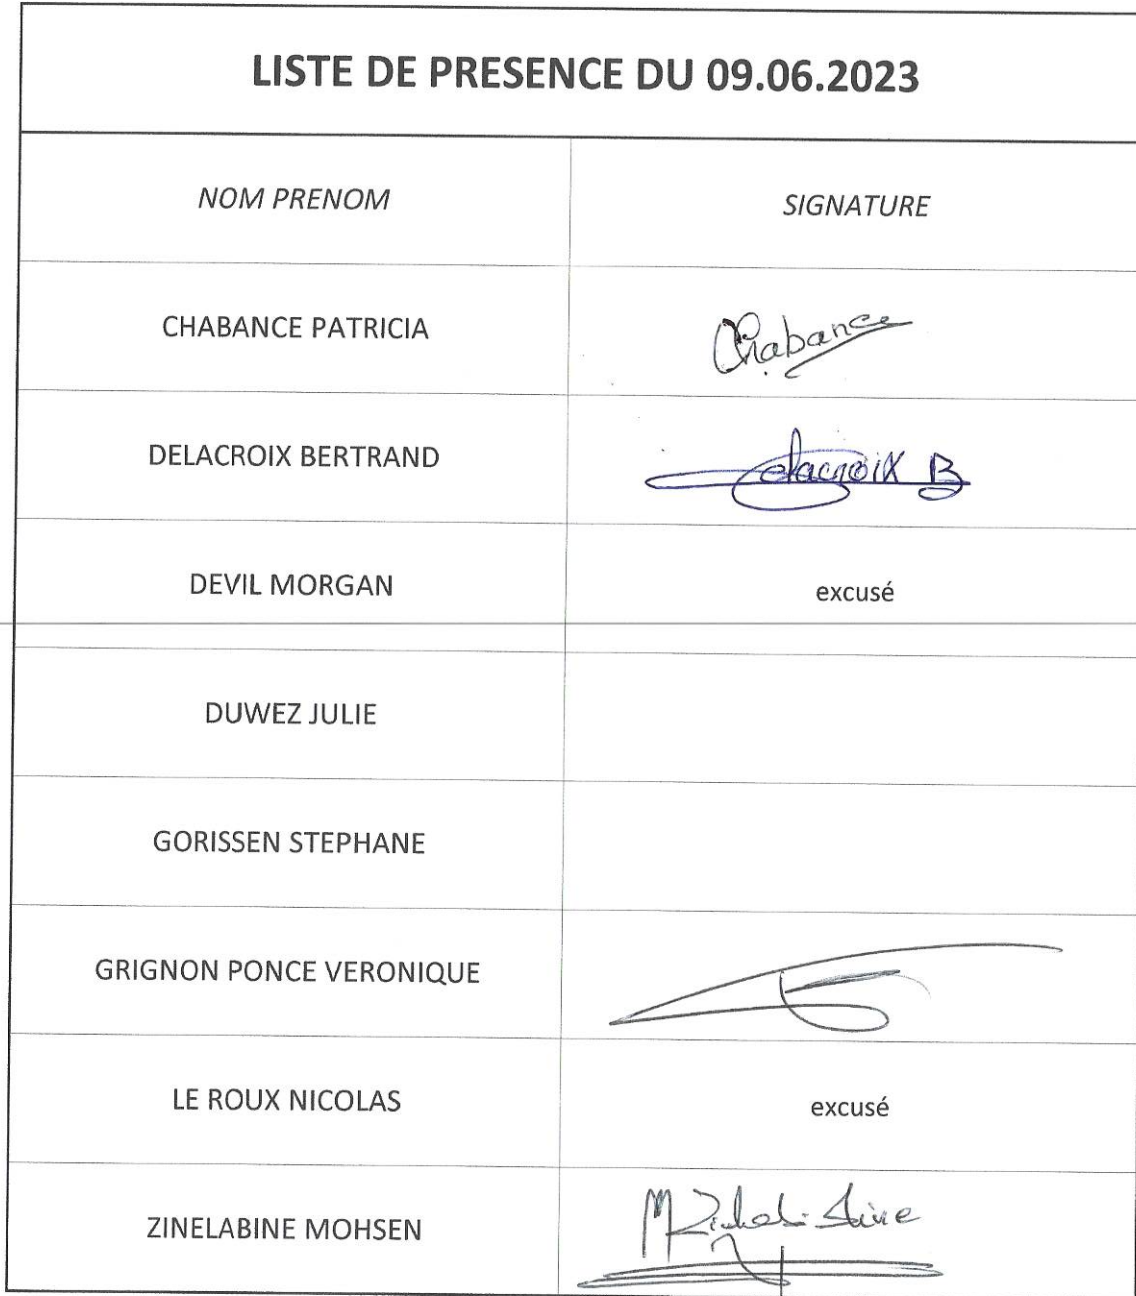 LISTE DE PRESENCE DU 09.06.2023
NOM PRENOM SIGNATURE
CHABANCE PATRICIA Chabance
DELACROIX BERTRAND Delacroix B
DEVIL MORGAN excusé
DUWEZ JULIE
GORISSEN STEPHANE
GRIGNON PONCE VERONIQUE
LE ROUX NICOLAS excusé
ZINELABINE MOHSEN